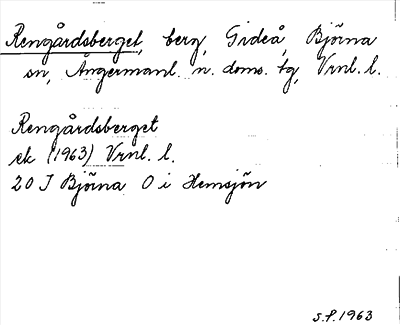 Rengårdsberget, berg, Gideå, Björna
sn, Ångermanl. n. doms. tg, Vrnl. l.
Rengårdsberget
ek (1963) Vrnl. l.
20 J Björna O i Hemsjön
S.F. 1963